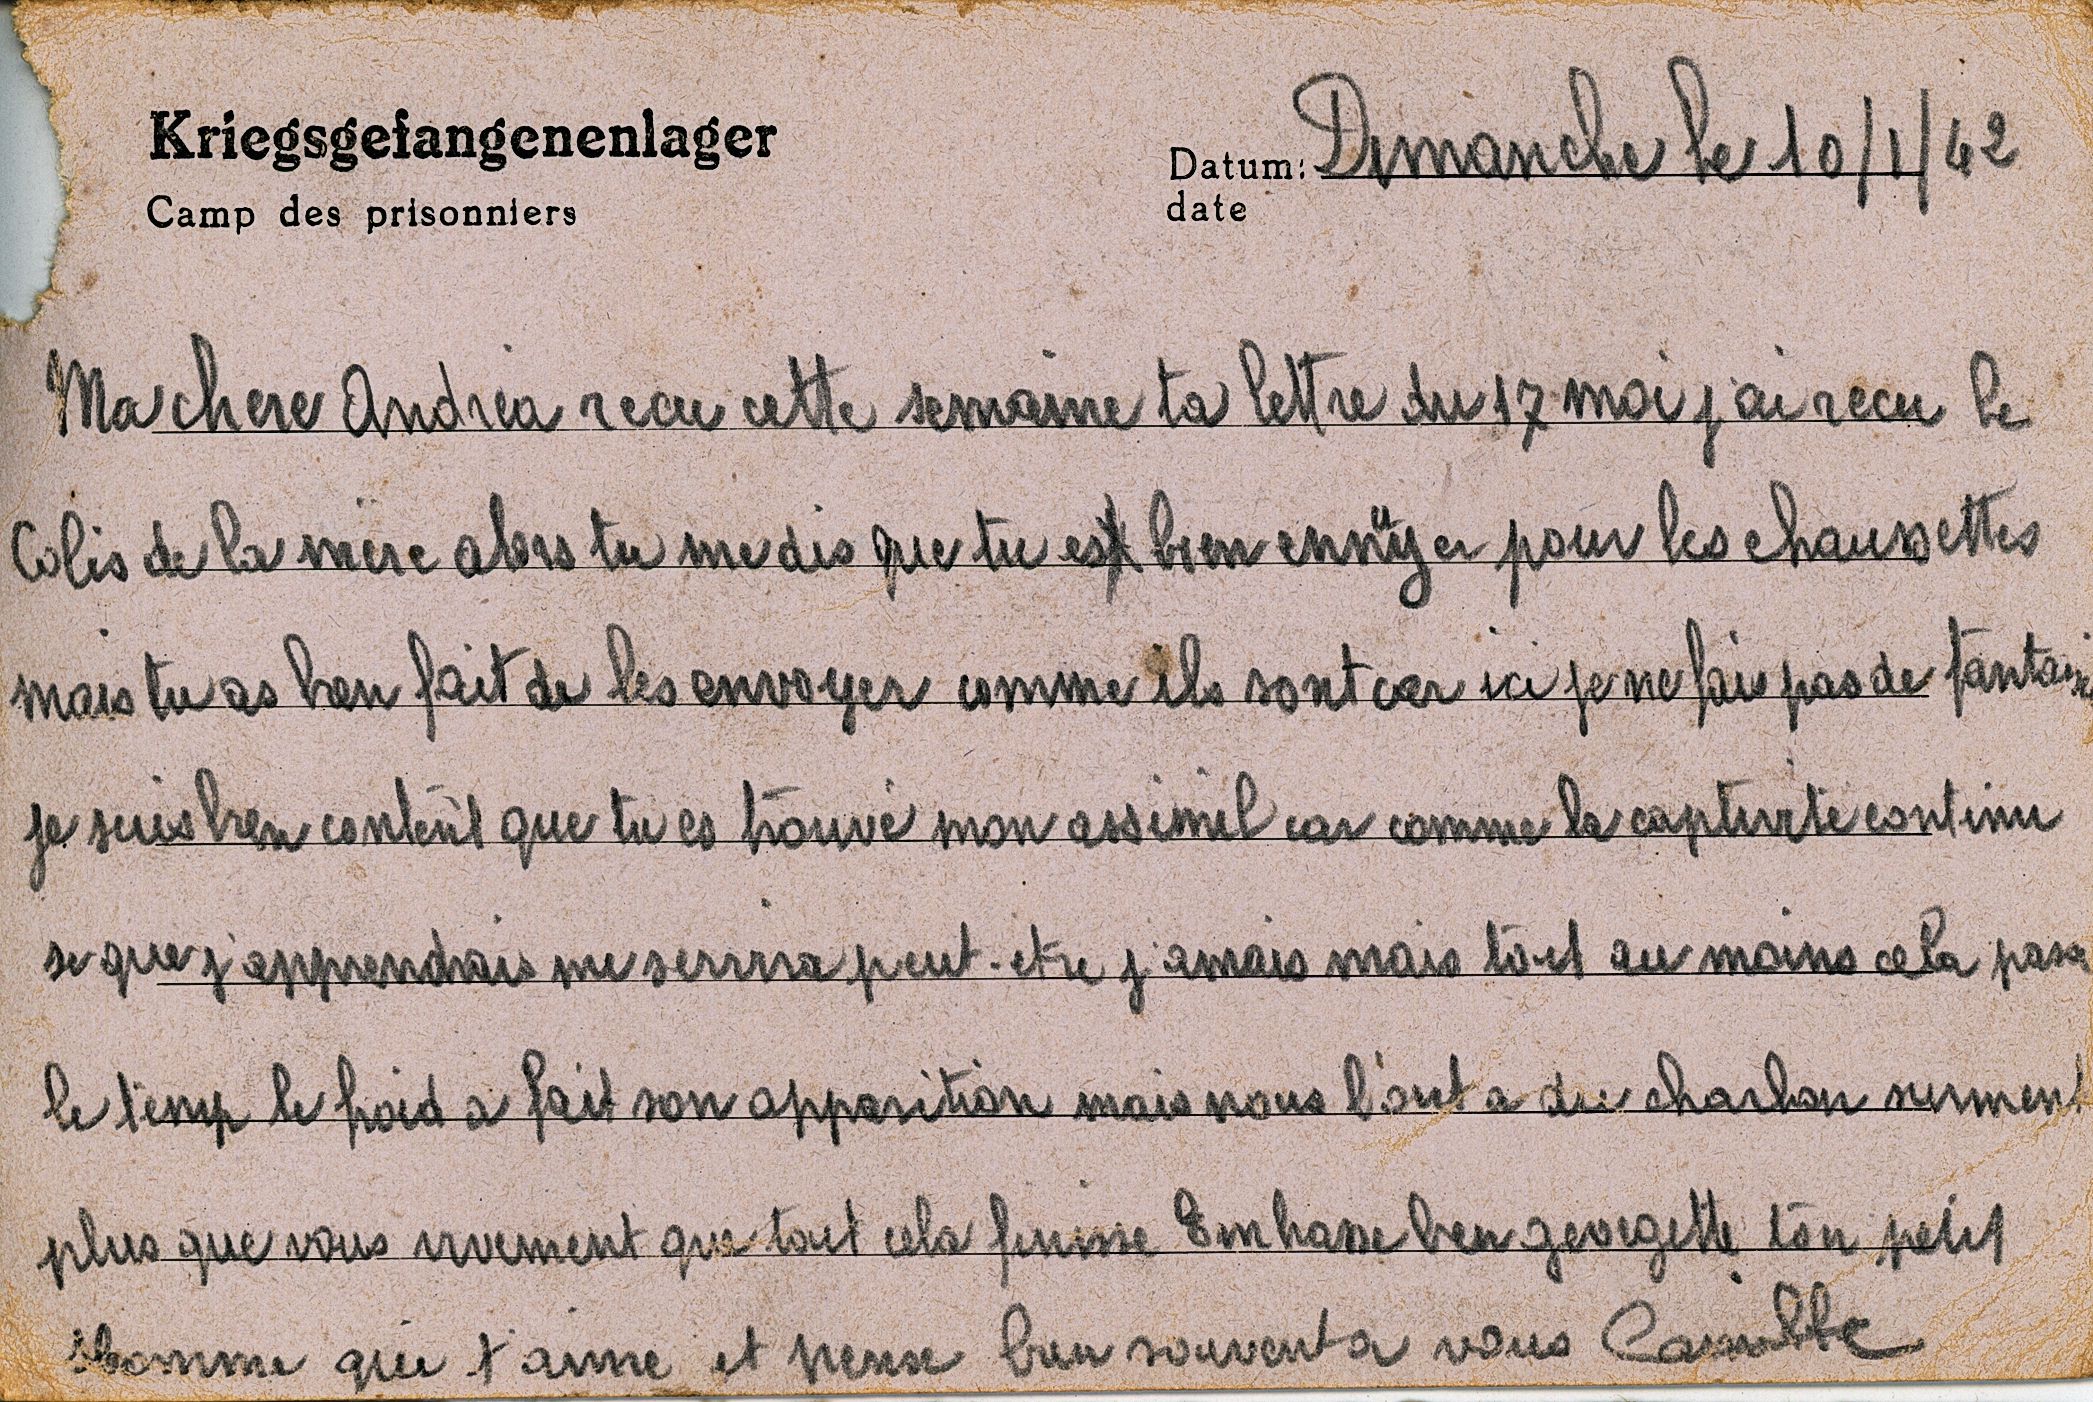 Kriegsgefangenenlager
Camp des prisonniers
Datum: Dimanche le 10/1/42
date
Ma chere Andréa recu cette semaine ta lettre du 17 moi j'ai recu le
Colis de la mère alors tu me dis que tu es bien ennuyer pour les chaussettes
mais tu as bien fait de les envoyer comme ils sont car ici je ne fais pas de fantaisi
je suis bien content que tu es trouvé mon assimil car comme la captivité continu
se que j'apprendrais me servira peut-etre jamais mais tout au moins cela passe
le temp le froid a fait son apparition mais nous l'ont a du charbon surment
plus que vous vivement que tout cela finisse Embrasse bien georgette ton petit
homme qui t'aime et pense bien souvent a vous Camille